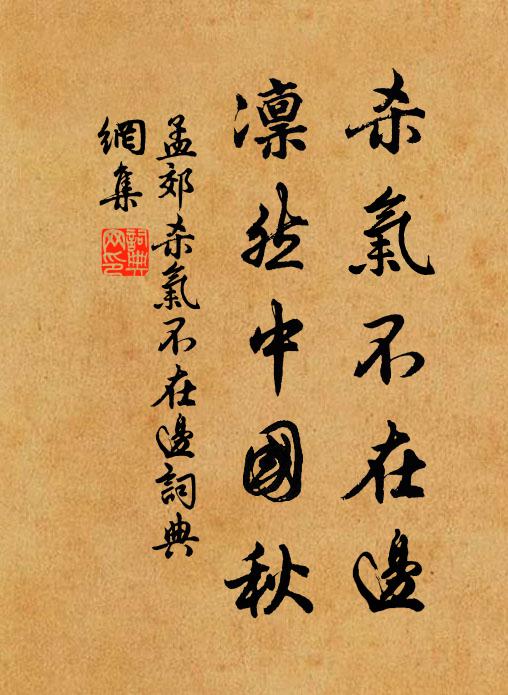 杀氣不在邊
凛然中國秋
孟郊杀氣不在邊詞典
網集
詞典
网印